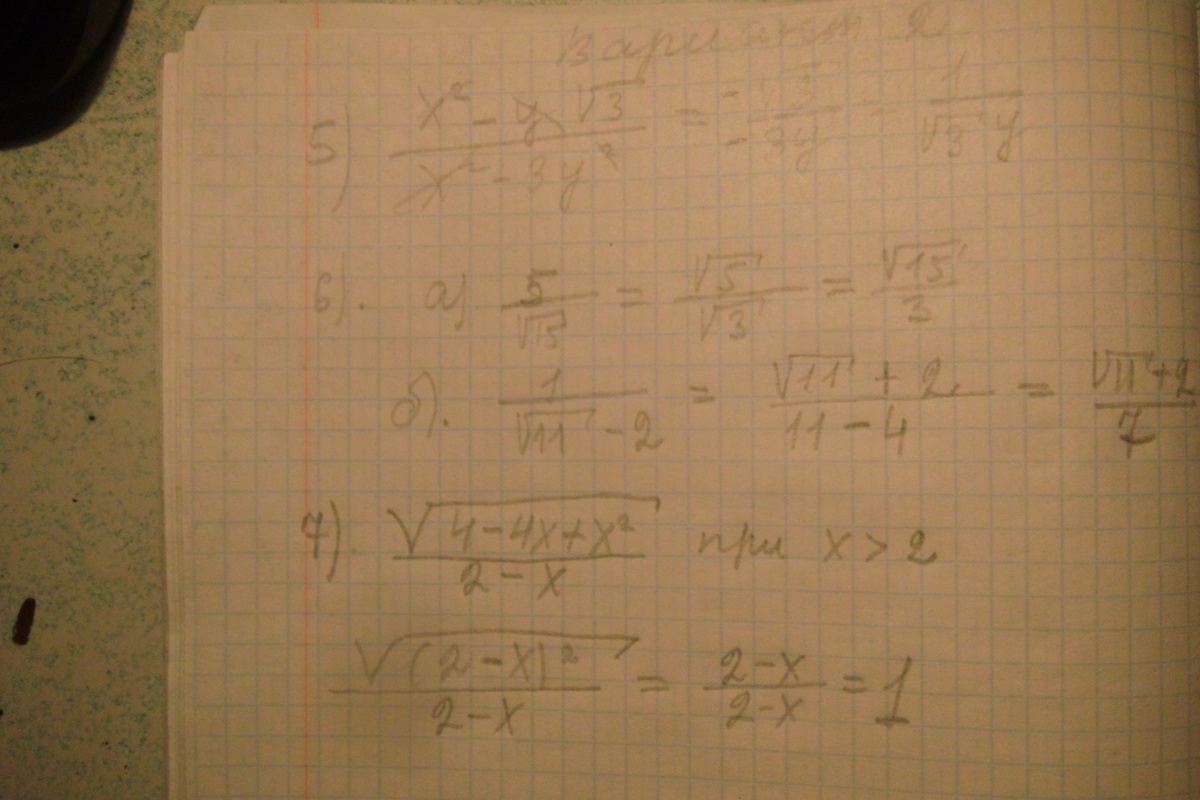 Вариант 2
5) (x² - y√3)/(x² - 3y²) = (-√3)/(-3y) = 1/(√3 y)
6). а) 5/√15 = √5/√3 = √15/3
б). 1/(√11 - 2) = (√11 + 2)/(11 - 4) = (√11 + 2)/7
7). √(4 - 4x + x²)/(2 - x) при x > 2
√((2 - x)²)/(2 - x) = (2 - x)/(2 - x) = 1